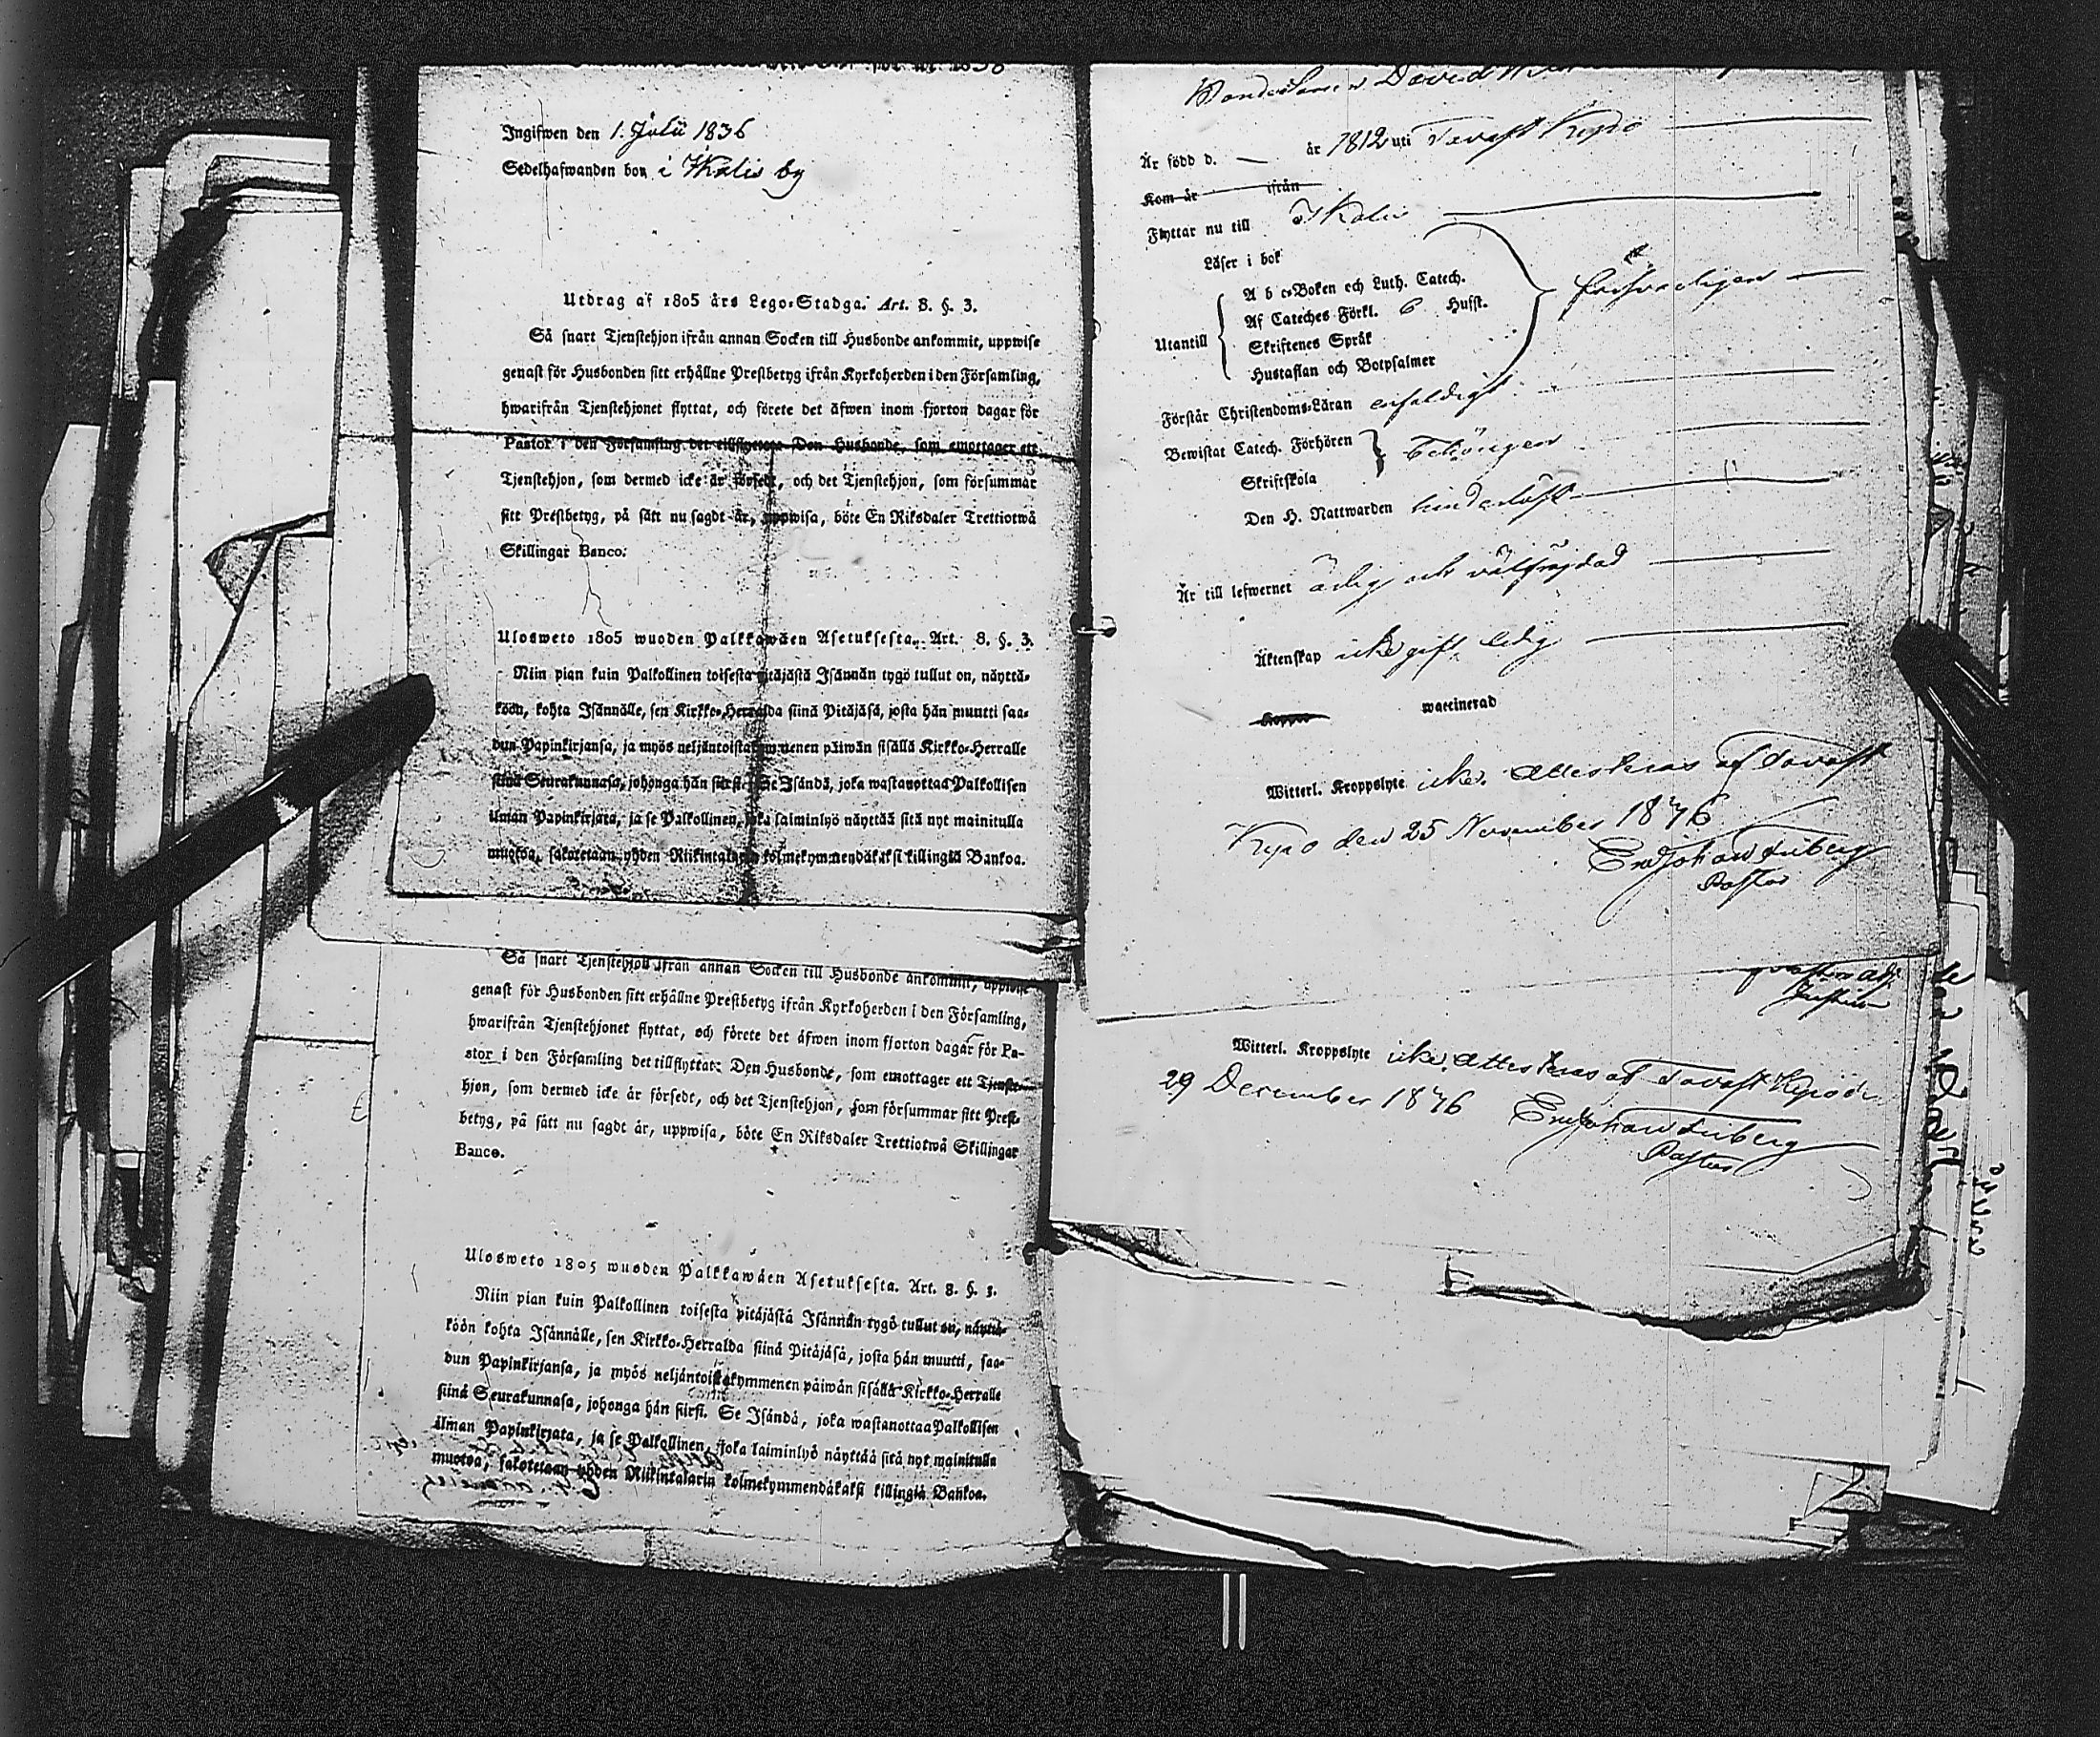 Ingifwen den 1. Julii 1836
Sedelhafwanden bor i Ikalis by
Utdrag af 1805 års Lego-Stadga. Art. 8. §. 3.
Så snart Tjenstehjon ifrån annan Socken till Husbonde ankommit, uppwise
genast för Husbonden sitt erhållne Prestbetyg ifrån Kyrkoherden i den Församling,
hwarifrån Tjenstehjonet flyttat, och förete det äfwen inom fjorton dagar för
Pastor i den Församling det tillflyttat. Den Husbonde, som emottager ett
Tjenstehjon, som dermed icke är försedt, och det Tjenstehjon, som försummar
sitt Prestbetyg, på sätt nu sagdt är, uppwisa, böte En Riksdaler Trettiotwå
Skillingar Banco.
Ulosweto 1805 wuoden Palkkawäen Asetuksesta. Art. 8. §. 3.
Niin pian kuin Palkollinen toisesta pitäjästä Isännän tygö tullut on, näyttä-
köön, kohta Isännälle, sen Kirkko-Herralda siinä Pitäjäsä, josta hän muutti saa-
dun Papinkirjansa, ja myös neljäntoistakymmenen päiwän sisällä Kirkko-Herralle
siinä Seurakunnasa, johonga hän siirsi. Se Isändä, joka wastanottaa Palkollisen
ilman Papinkirjata, ja se Palkollinen, joka laiminlyö näyttää sitä nyt mainitulla
muotoa, sakotetaan yhden Riikintalarin kolmekymmendäkaksi killingiä Bankoa.
Så snart Tjenstehjon ifrån annan Socken till Husbonde ankommit, uppwise
genast för Husbonden sitt erhållne Prestbetyg ifrån Kyrkoherden i den Församling,
hwarifrån Tjenstehjonet flyttat, och förete det äfwen inom fjorton dagar för Pa-
stor i den Församling det tillflyttat. Den Husbonde, som emottager ett Tjenste-
hjon, som dermed icke är försedt, och det Tjenstehjon, som försummar sitt Prest-
betyg, på sätt nu sagdt är, uppwisa, böte En Riksdaler Trettiotwå Skillingar
Banco.
Ulosweto 1805 wuoden Palkkawäen Asetuksesta. Art. 8. §. 3.
Niin pian kuin Palkollinen toisesta pitäjästä Isännän tygö tullut on, näyttä-
köön kohta Isännälle, sen Kirkko-Herralda siinä Pitäjäsä, josta hän muutti, saa-
dun Papinkirjansa, ja myös neljäntoistakymmenen päiwän sisällä Kirkko-Herralle
siinä Seurakunnasa, johonga hän siirsi. Se Isändä, joka wastanottaa Palkollisen
ilman Papinkirjata, ja se Palkollinen, joka laiminlyö näyttää sitä nyt mainitulla
muotoa, sakotetaan yhden Riikintalarin kolmekymmendäkaksi killingiä Bankoa.
Bondesonen David
Är född d. — år 1812 uti Tavast Kyro
Kom år ifrån
Flyttar nu till Ikalis
Läser i bok
Utantill
A b c-Boken och Luth. Catech.
Af Cateches Förkl. 6 Husst.
Skriftenes Språk
Hustaflan och Botpsalmer
försvarligen
Förstår Christendoms-Läran enfaldigt
Bewistat Catech. Förhören
Skriftskola
behörigen
Den H. Nattwarden hinderlöst
Är till lefwernet ärlig och välfräjdad
Äktenskap icke gift, ledig
Koppor waccinerad
Witterl. Kroppslyte icke. Attesteras af Tavast
Kyro den 25 November 1836
Er Johan Friberg
Pastor
Witterl. Kroppslyte icke. Attesteras af Tavast Kyro d.
29 December 1836
Er Johan Friberg
Pastor